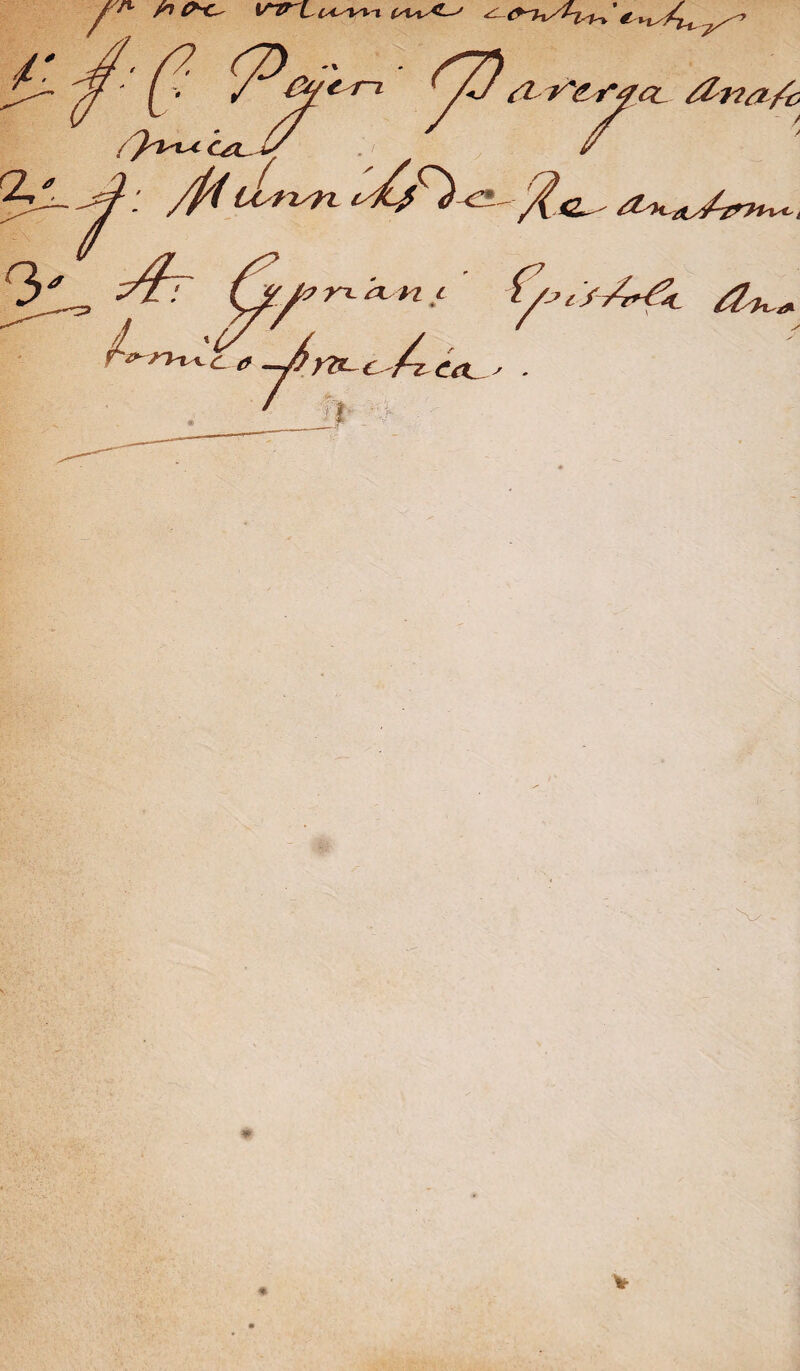 In hoc volumine continentur
1° J: C: Peÿeri Parerga Anato
mica
2° J: Munniks De Re anatomi
3° A: Cypriani Epistola Ana
tomico practica .